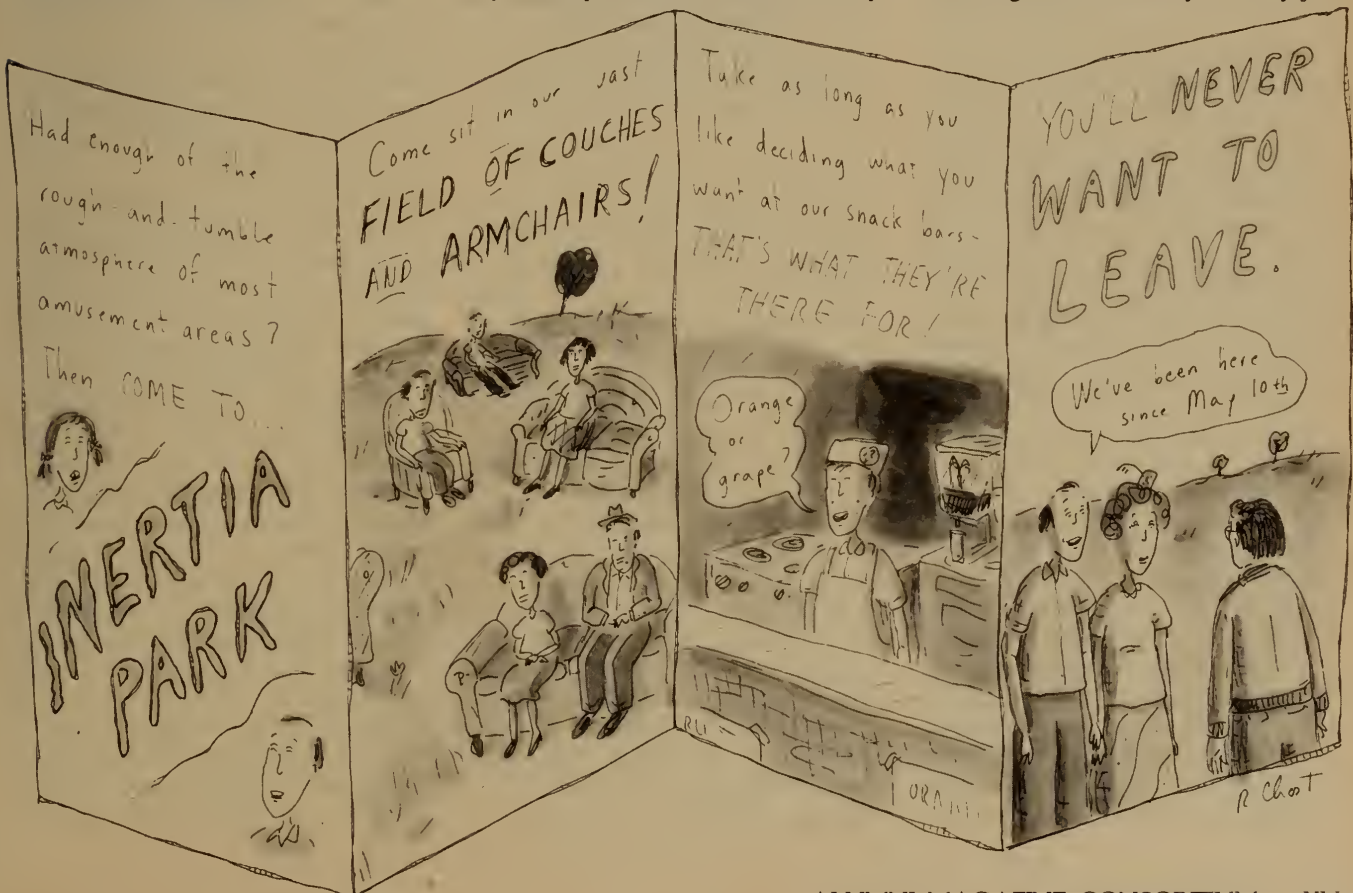 Had enough of the
rough-and-tumble
atmosphere of most
amusement areas?
Then COME TO...
INERTIA
PARK
Come sit in our vast
FIELD OF COUCHES
AND ARMCHAIRS!
Take as long as you
like deciding what you
want at our snack bars-
THAT'S WHAT THEY'RE
THERE FOR!
Orange
or
grape?
YOU'LL NEVER
WANT TO
LEAVE.
We've been here
since May 10th
R Chast